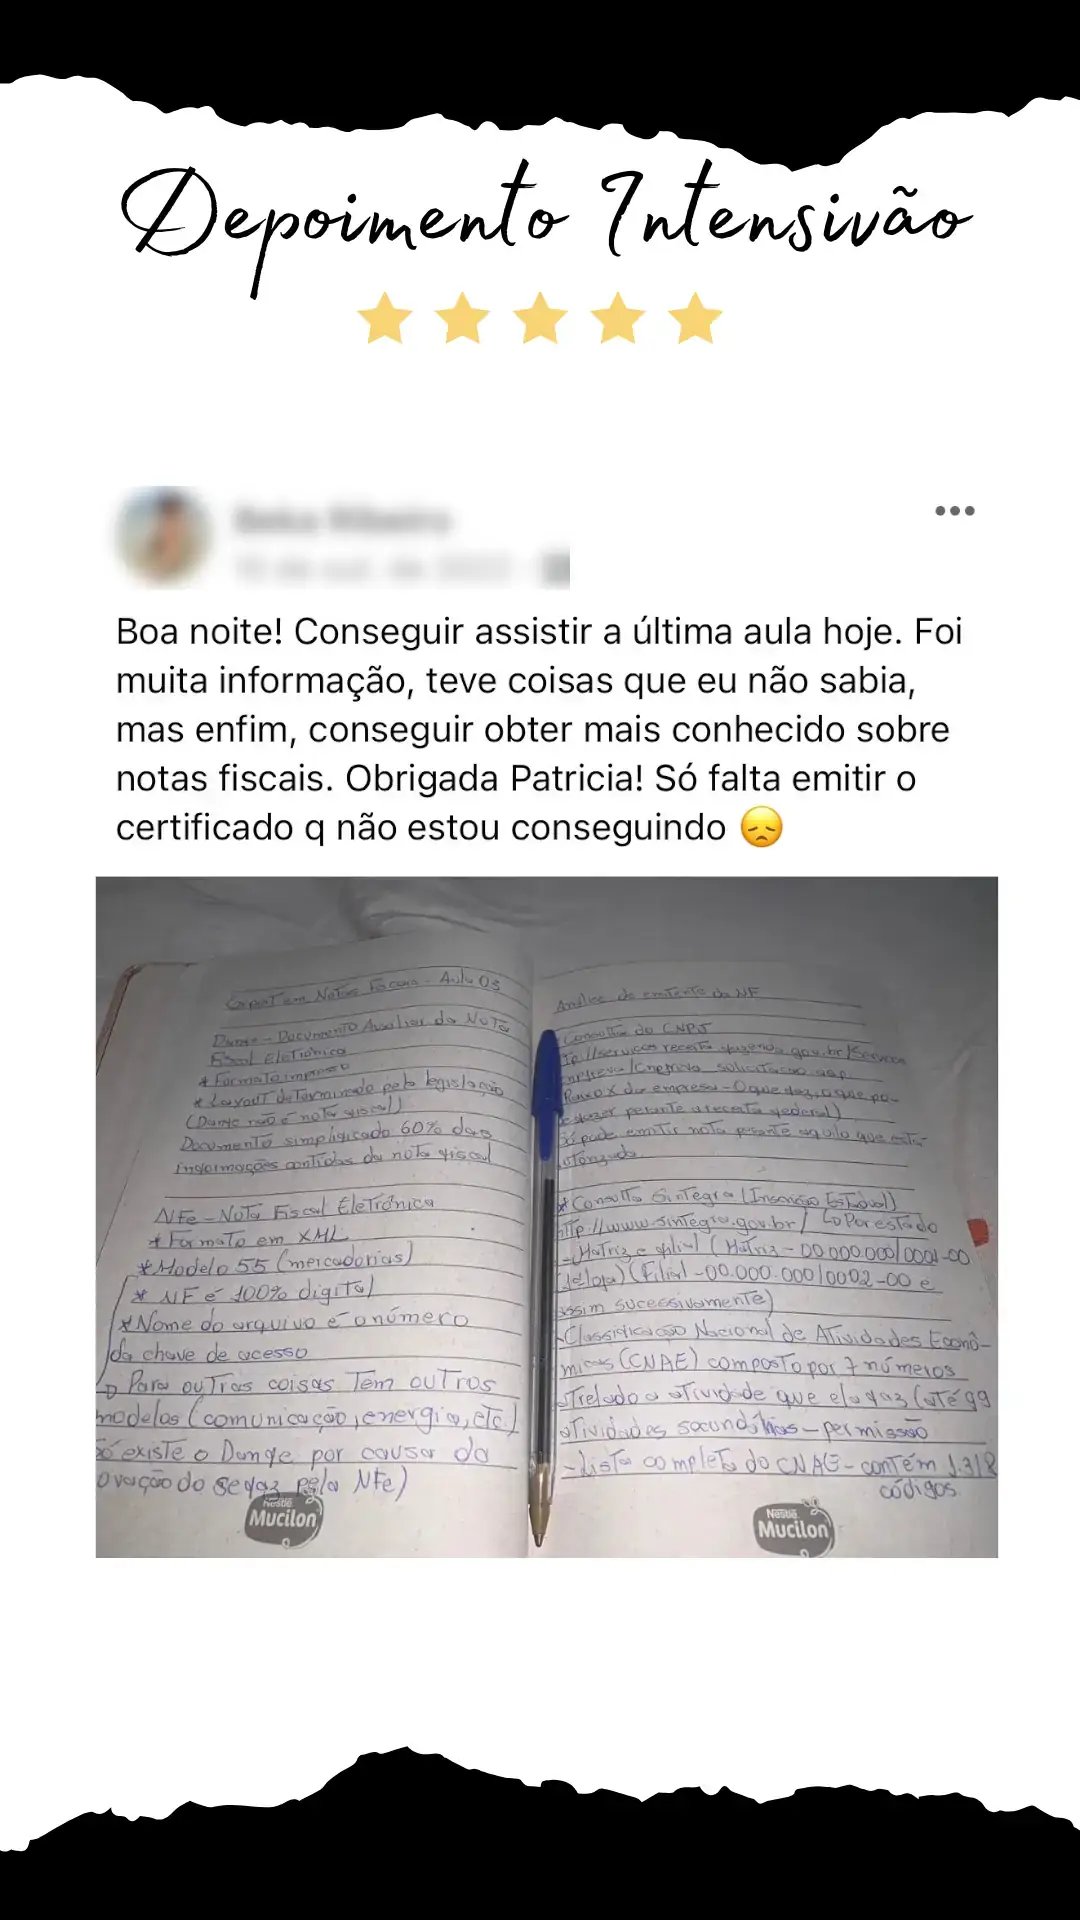 Depoimento Intensivão
Boa noite! Conseguir assistir a última aula hoje. Foi
muita informação, teve coisas que eu não sabia,
mas enfim, conseguir obter mais conhecido sobre
notas fiscais. Obrigada Patricia! Só falta emitir o
certificado q não estou conseguindo 😞
Expert em Notas Fiscais - Aula 03
Danfe - Documento Auxiliar da Nota
Fiscal Eletrônica
* Formato impresso
* Layout determinado pela legislação
(Danfe não é nota fiscal)
Documento simplificado 60% das
informações contidas da nota fiscal
NFe - Nota Fiscal Eletrônica
* Formato em XML
* Modelo 55 (mercadorias)
* NF é 100% digital
* Nome do arquivo é o número
da chave de acesso
Para outras coisas tem outros
modelos (comunicação, energia, etc)
só existe o Danfe por causa da
ovação do Sefaz pela NFe)
Nestlé
Mucilon
Análise do emitente da NF
Consulta do CNPJ
receita fazenda.gov.br/
solicitacao.asp
Raio X da empresa - O que faz, o que po-
e fazer perante a receita federal)
só pode emitir nota perante aquilo que está
autorizado.
* Consulta Sintegra (Inscrição Estadual)
http://www.sintegra.gov.br/ Por estado
- Matriz e filial (Matriz - 00.000.000/0001-00
(1ª loja) (Filial - 00.000.000/0002-00 e
assim sucessivamente)
Classificação Nacional de Atividades Econô-
micas (CNAE) composto por 7 números
atrelado a atividade que ela faz (até 99
atividades secundárias - permissão
- Lista completa do CNAE - contém 1.318
códigos
Nestlé
Mucilon